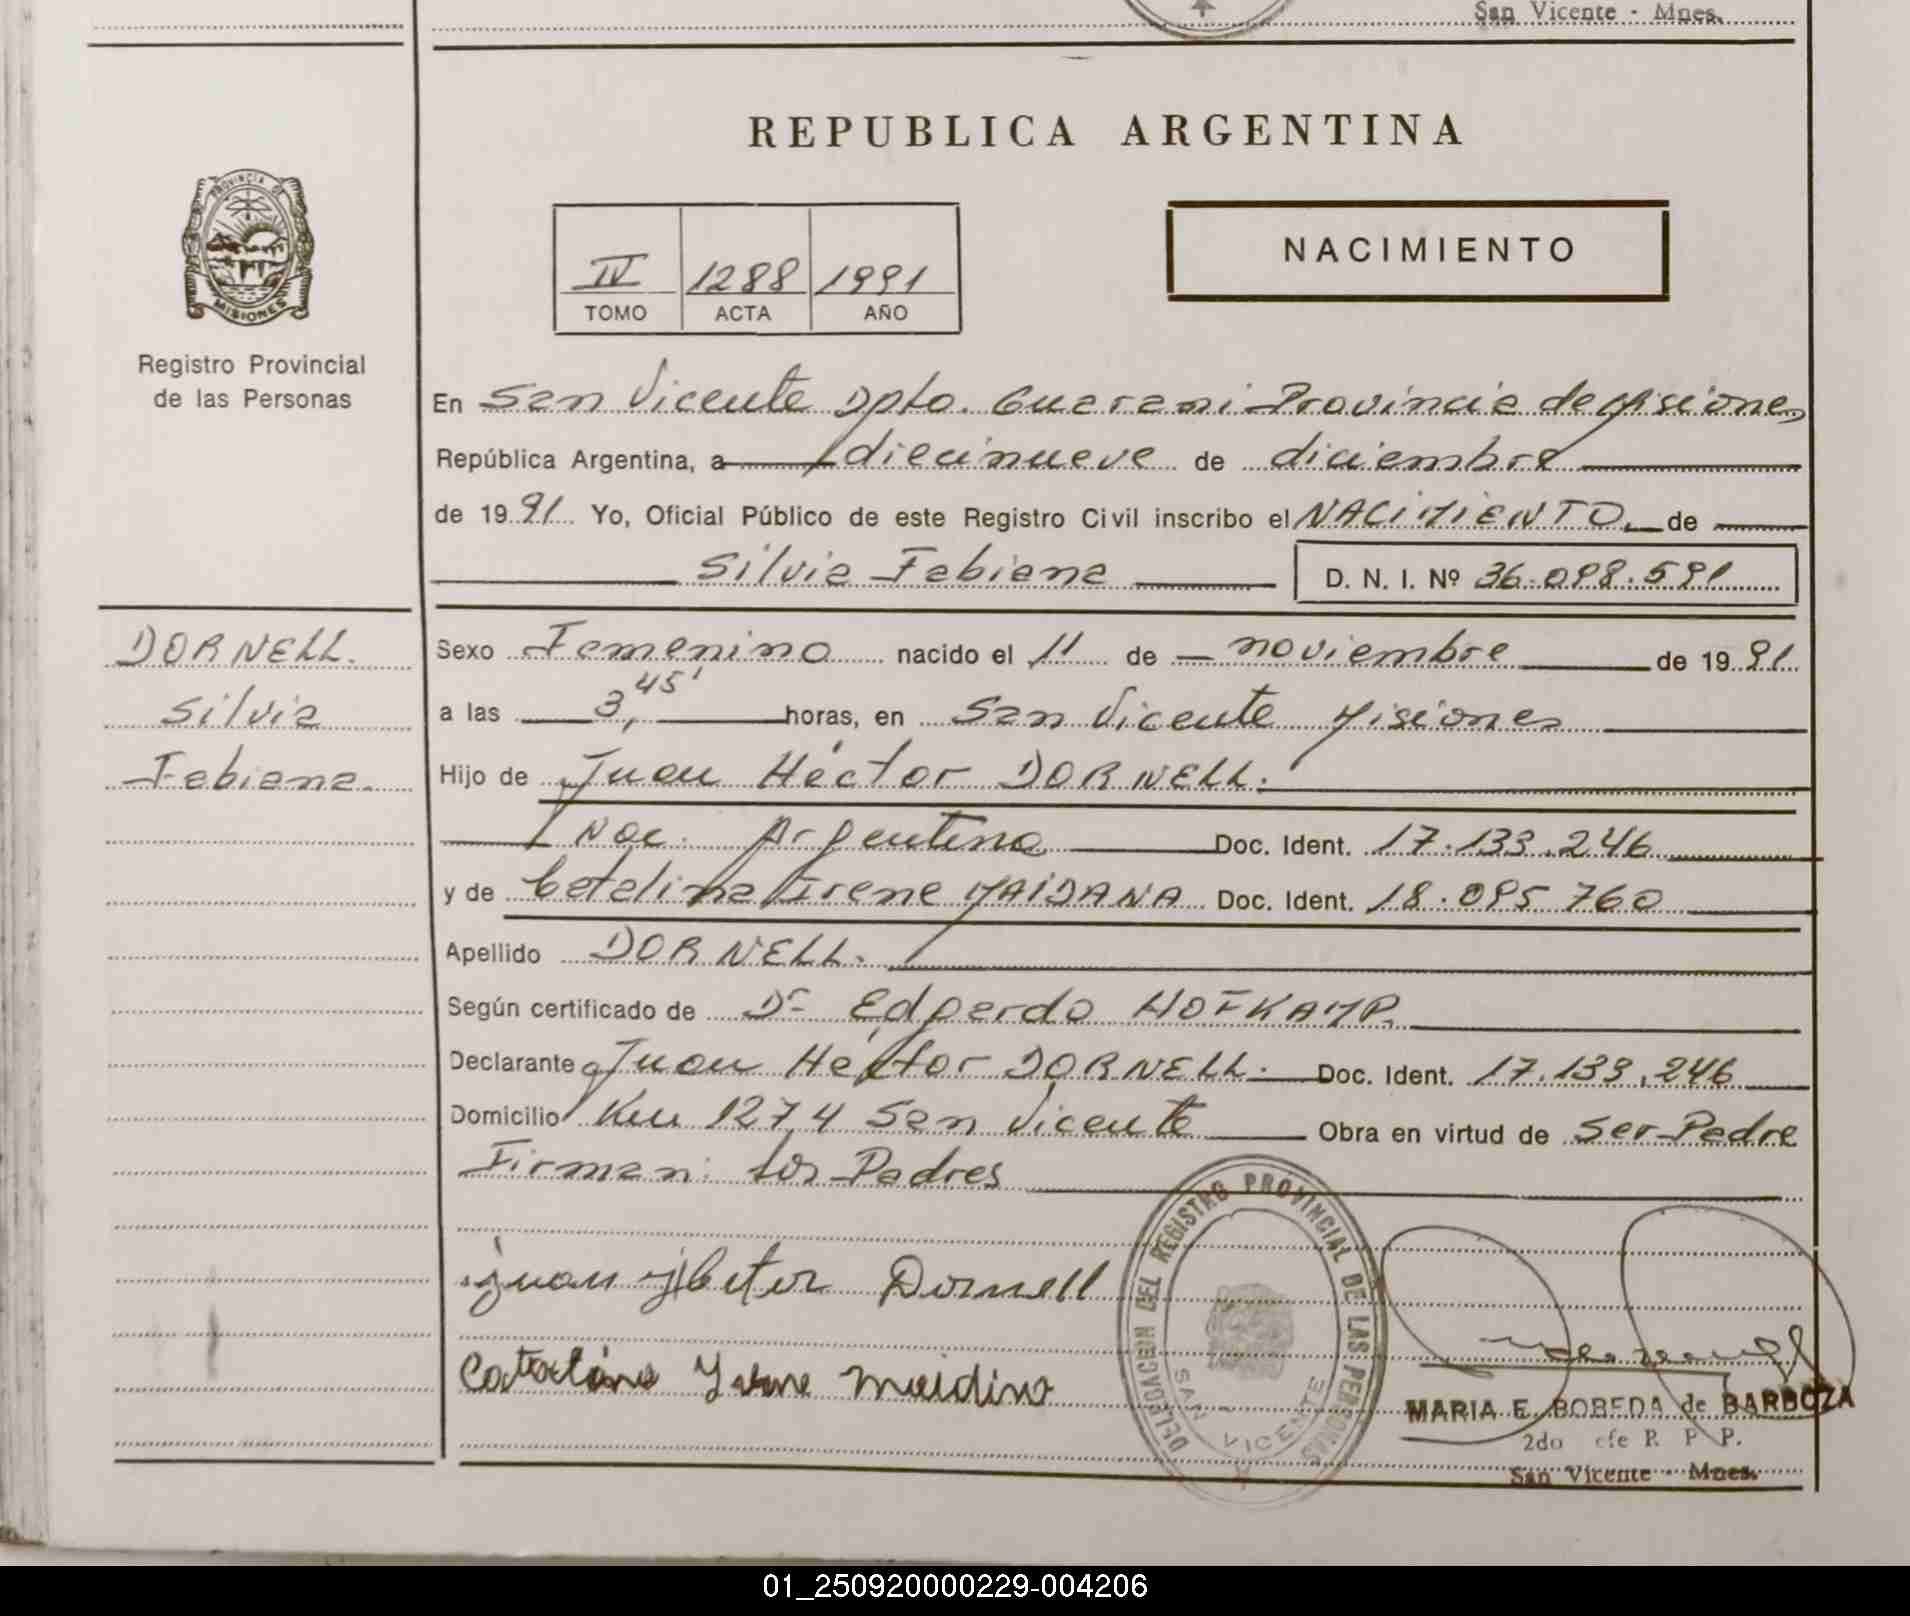 San Vicente - Mnes.
REPUBLICA ARGENTINA
PROVINCIA DE
MISIONES
Registro Provincial
de las Personas
IV 1288 1991
TOMO ACTA AÑO
NACIMIENTO
En San Vicente Dpto. Guarani Provincia de Misiones
República Argentina, a diecinueve de diciembre
de 1991 Yo, Oficial Público de este Registro Civil inscribo el NACIMIENTO. de
Silvia Fabiana D. N. I. Nº 36.098.591
DORNELL.
Silvia
Fabiana.
Sexo Femenino nacido el 11 de noviembre de 1991
a las 3,45' horas, en San Vicente Misiones
Hijo de Juan Héctor DORNELL.
Nac. Argentina Doc. Ident. 17.133.246
y de Catalina Irene MAIDANA Doc. Ident. 18.095.760
Apellido DORNELL.
Según certificado de Dr Edgardo HOFKAMP.
Declarante Juan Héctor DORNELL. Doc. Ident. 17.133.246
Domicilio Km 1274 San Vicente Obra en virtud de Ser Padre
Firman: Los Padres
Juan Hector Dornell
Catalina Yrene Maidana
DELEGACION DEL REGISTRO PROVINCIAL DE LAS PERSONAS
SAN VICENTE
MARIA E. BOBEDA de BARBOZA
2do Jefe R. P. P.
San Vicente - Mnes.
01_250920000229-004206